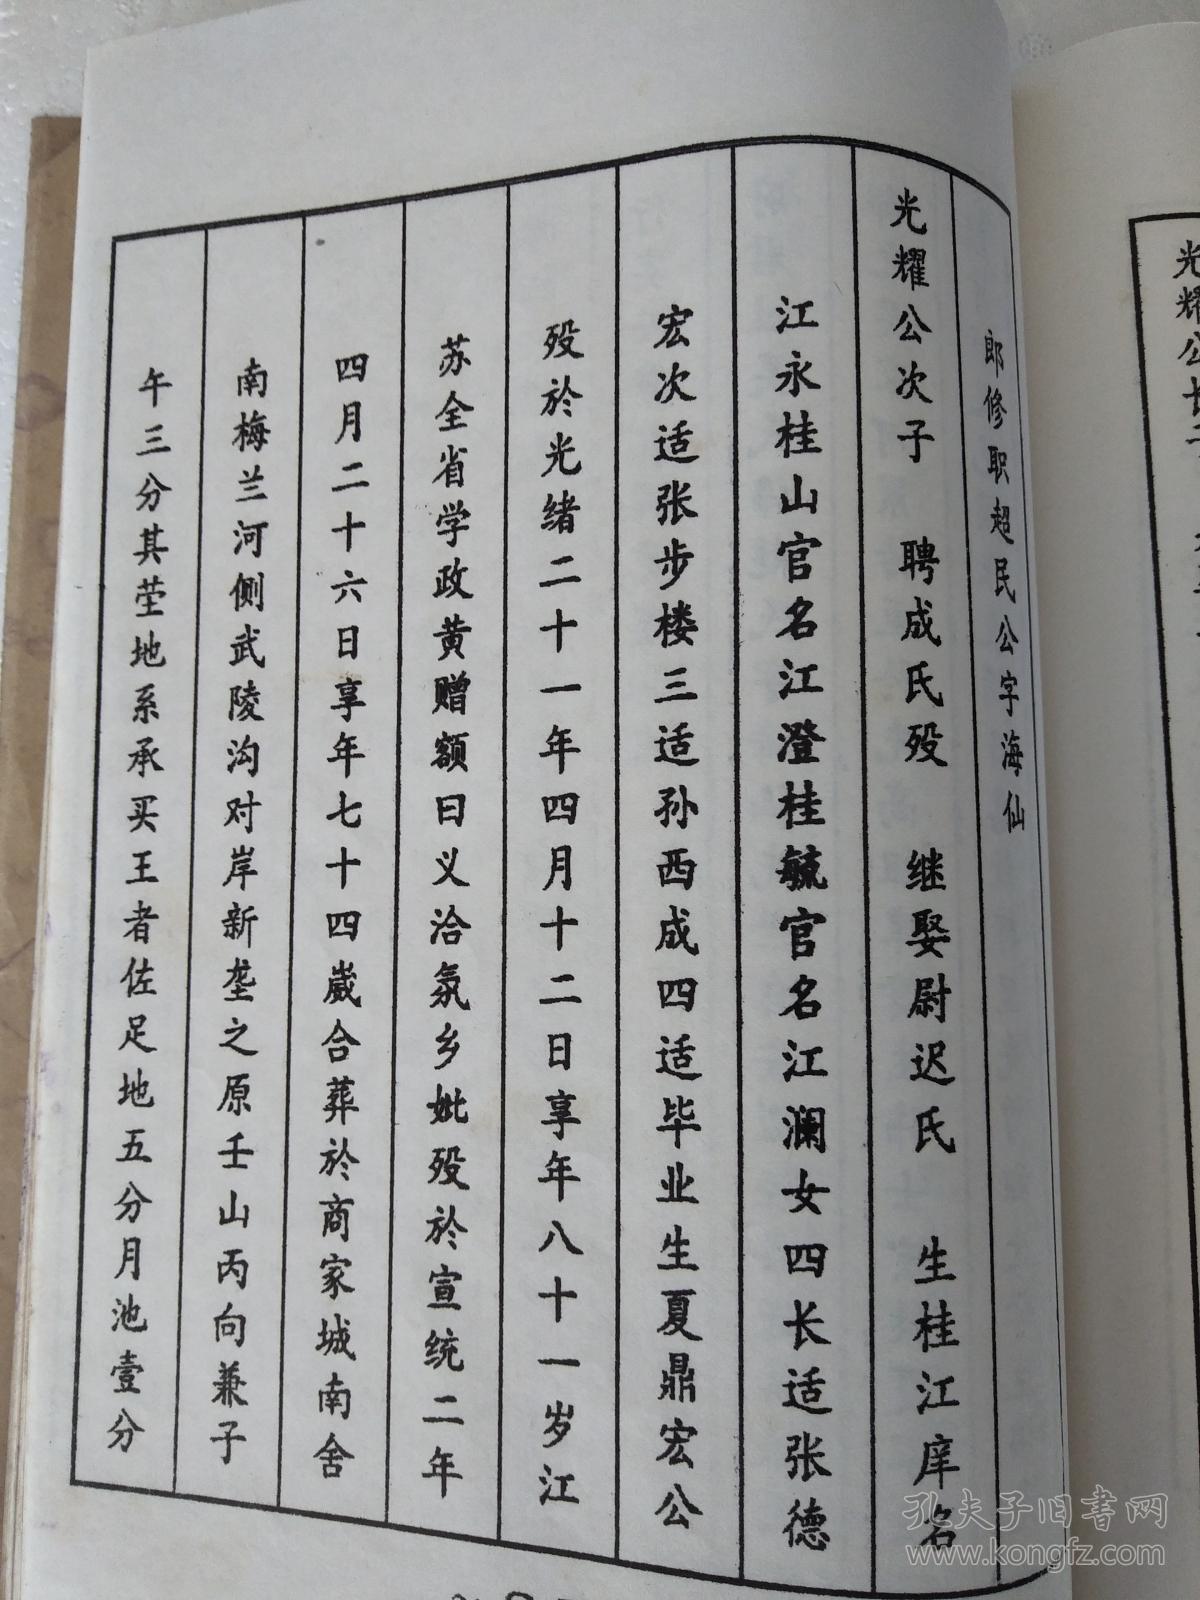 光耀公长子
郎修职超民公字海仙
光耀公次子 聘成氏殁 继娶尉迟氏 生桂江庠名
江永桂山官名江澄桂毓官名江澜女四长适张德
宏次适张步楼三适孙西成四适毕业生夏鼎宏公
殁於光绪二十一年四月十二日享年八十一岁江
苏全省学政黄赠额曰义洽氛乡妣殁於宣统二年
四月二十六日享年七十四崴合葬於商家城南舍
南梅兰河侧武陵沟对岸新垄之原壬山丙向兼子
午三分其茔地系承买王者佐足地五分月池壹分
孔夫子旧书网
www.kongfz.com